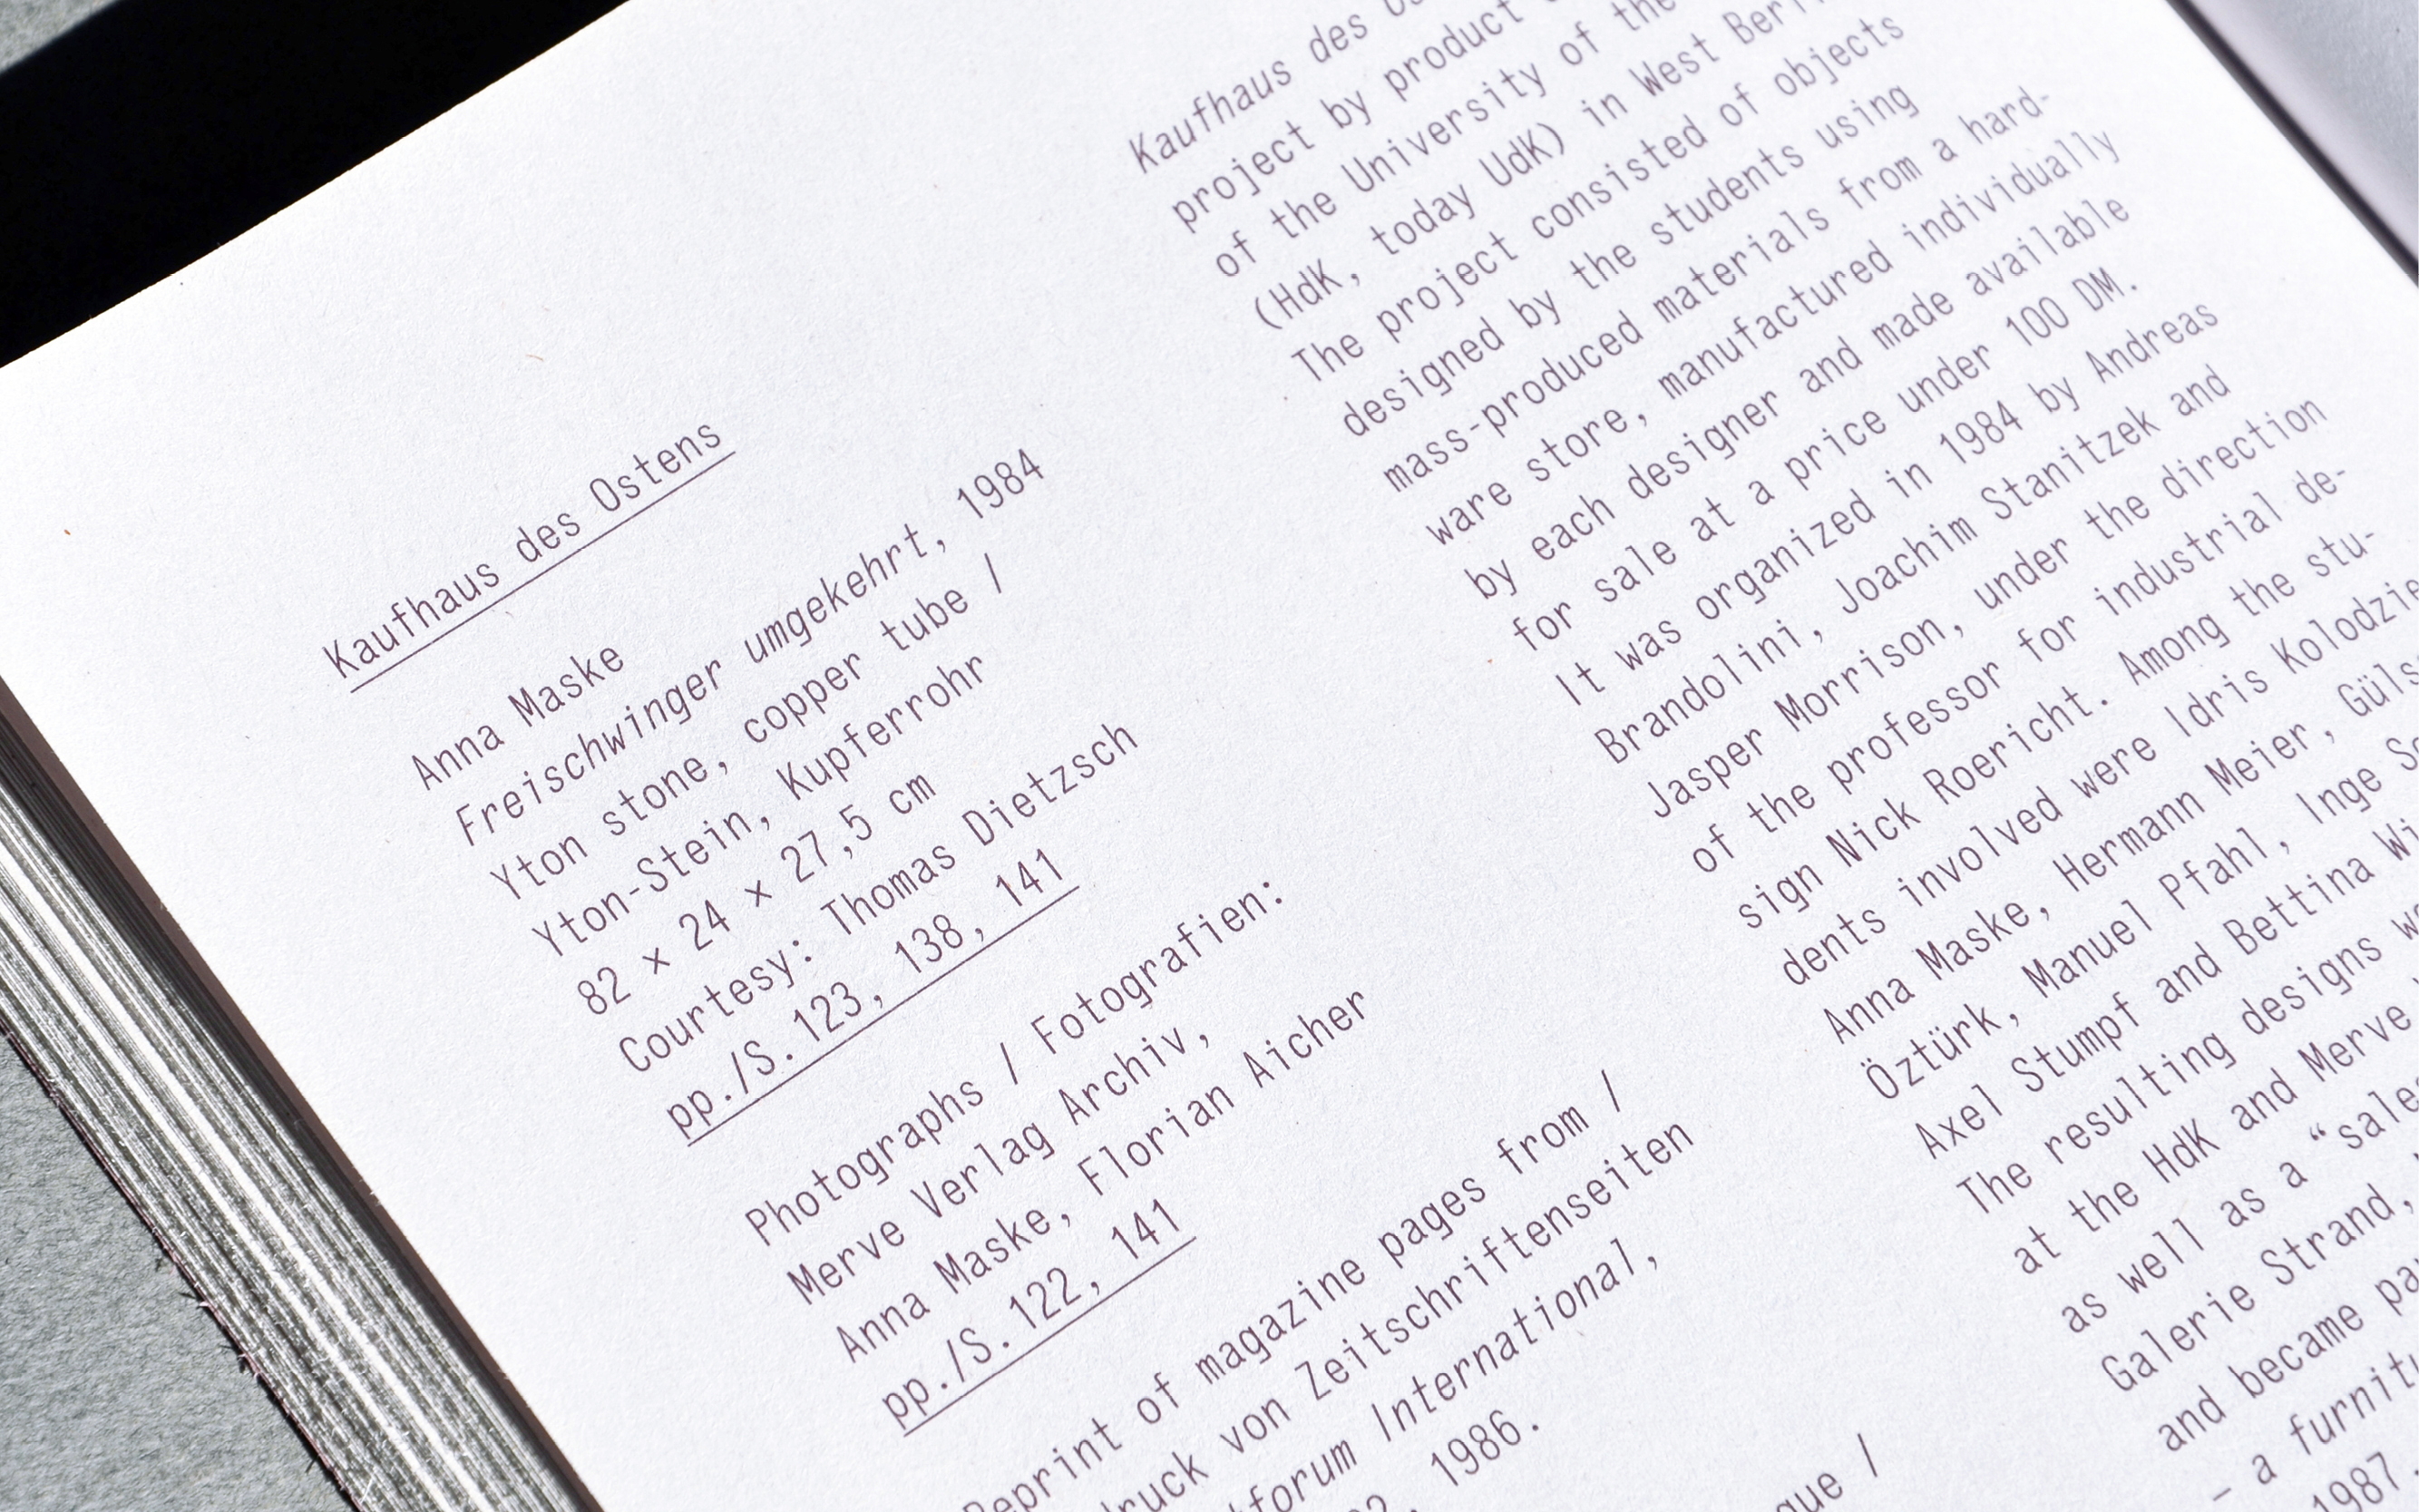 Kaufhaus des Ostens
Anna Maske
Freischwinger umgekehrt, 1984
Yton stone, copper tube /
Yton-Stein, Kupferrohr
82 × 24 × 27,5 cm
Courtesy: Thomas Dietzsch
pp./S. 123, 138, 141
Photographs / Fotografien:
Merve Verlag Archiv,
Anna Maske, Florian Aicher
pp./S. 122, 141
Reprint of magazine pages from /
von Zeitschriftenseiten
International,
1986.
/
Kaufhaus des
project by product
of the University of the
(HdK, today UdK) in West
The project consisted of objects
designed by the students using
mass-produced materials from a hard-
ware store, manufactured individually
by each designer and made available
for sale at a price under 100 DM.
It was organized in 1984 by Andreas
Brandolini, Joachim Stanitzek and
Jasper Morrison, under the direction
of the professor for industrial de-
sign Nick Roericht. Among the stu-
dents involved were Idris
Anna Maske, Hermann Meier,
Öztürk, Manuel Pfahl, Inge
Axel Stumpf and Bettina
The resulting designs
at the HdK and Merve
as well as a “sales
Galerie Strand,
and became
– a
1987.